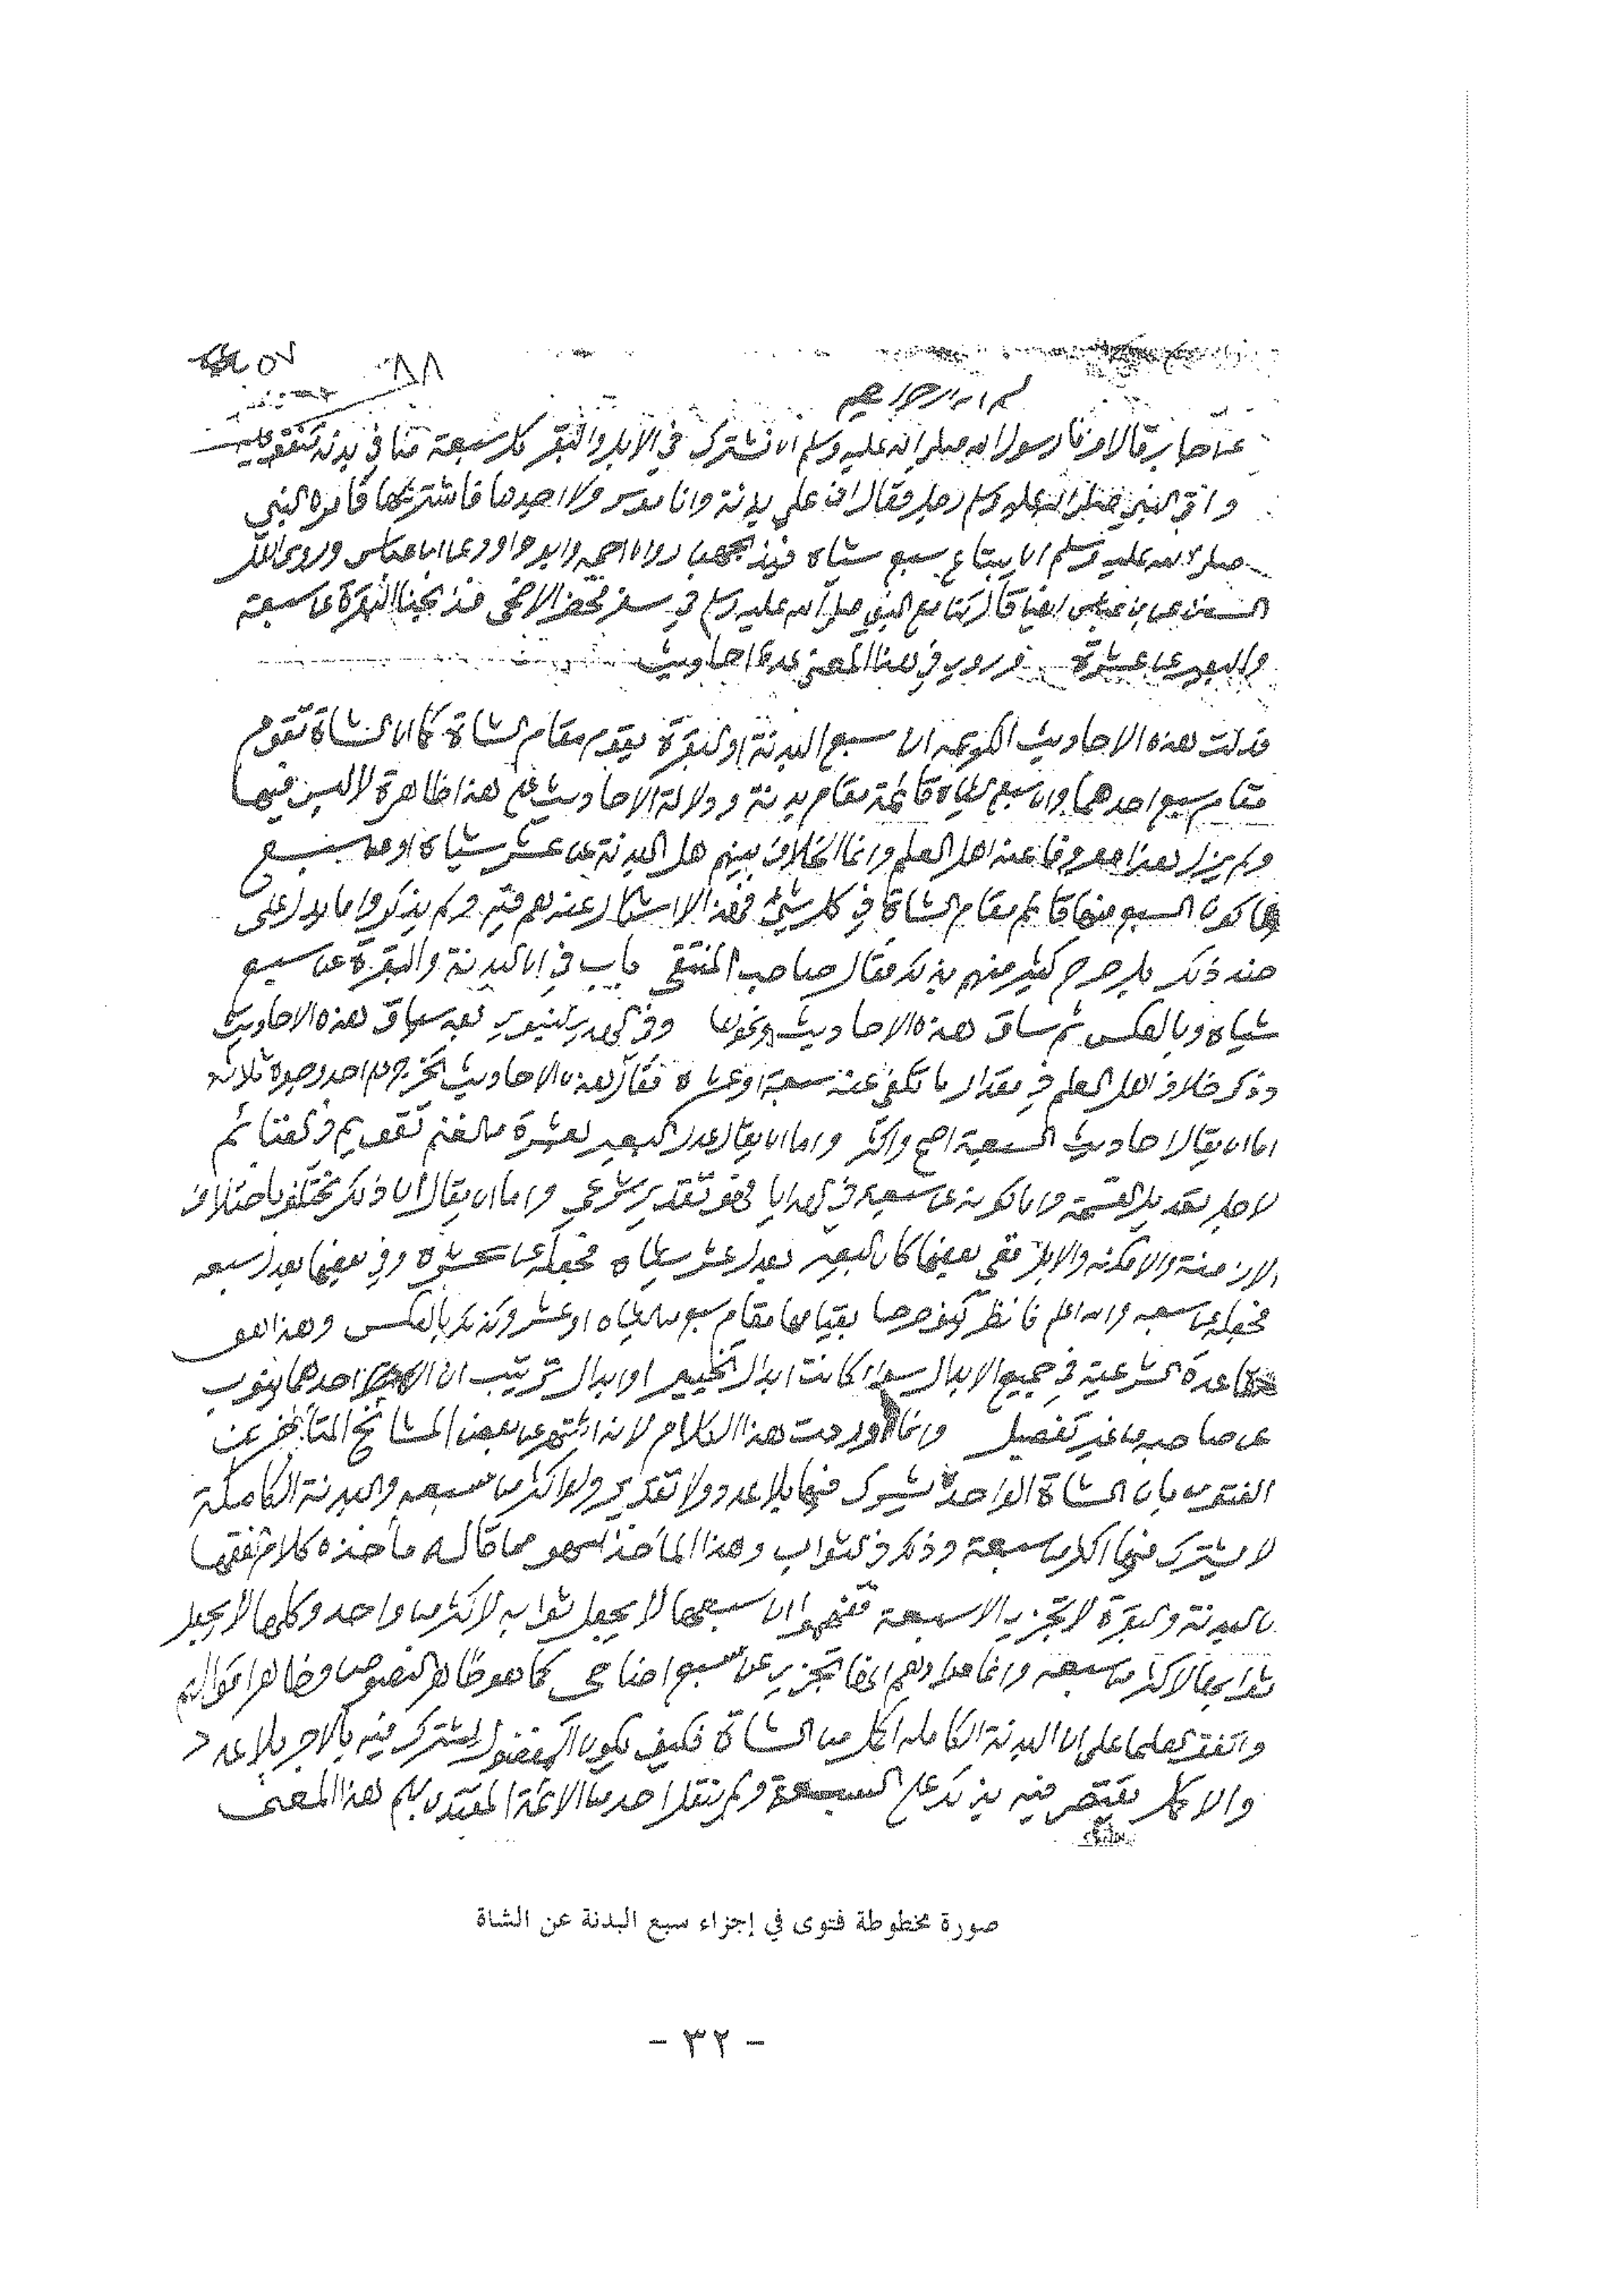 ٨٨
٥٧
بسم الله الرحمن الرحيم
عن جابر قال امرنا رسول الله صلى الله عليه وسلم ان نشترك في الابل والبقر كل سبعة منا في بدنة متفق عليه
واتى النبي صلى الله عليه وسلم رجل فقال ان علي بدنة وانا موسر ولا اجدها فاشتريها فامره النبي
صلى الله عليه وسلم ان يبتاع سبع شياه فيذبحهن رواه احمد وابو داوود عن ابن عباس وروى اهل
السنن عن ابن عباس ايضا قال كنا مع النبي صلى الله عليه وسلم في سفر فحضر الاضحى فذبحنا البقرة عن سبعة
والبعير عن عشرة وروي في هذا المعنى عدة احاديث
فدلت هذه الاحاديث الكريمه ان سبع البدنة او البقرة يقوم مقام الشاة كما ان الشاة تقوم
مقام سبع احدهما وان سبع شياه قائمة مقام بدنة ودلالة الاحاديث على هذا ظاهرة لا لبس فيها
ولم يزل هذا معروفا عند اهل العلم وانما الخلاف بينهم هل البدنة عن عشر شياه او عن سبع
اما كون السبع منها قائم مقام الشاة في كل شيء فهذا لا اشكال عندهم فيه ولم يذكروا ما يدل على
ضد ذلك بل صرح كثير منهم بذلك فقال صاحب المنتقى باب في ان البدنة والبقرة عن سبع
شياه وبالعكس ثم ساق هذه الاحاديث ونحوها وفي الهدي النبوي بعد سياق هذه الاحاديث
وذكر خلاف اهل العلم في مقدار ما تكفي عنه سبعة او عشرة فقال هذه الاحاديث تخرج على احد وجوه ثلاثة
اما ان يقال احاديث السبعة اصح واكثر واما ان يقال عدل البعير بعشرة من الغنم تقويم في الغنائم
لاجل تعديل القسمة واما كونه عن سبعة في الهدايا فهو تقدير شرعي واما ان يقال ان ذلك يختلف باختلاف
الازمنة والامكنة والابل ففي بعضها كان البعير يعدل عشر شياه فجعله عن عشرة وفي بعضها يعدل سبعه
فجعله عن سبعه والله اعلم فانظر كيف صرحا بقيامها مقام سبع من الشياه او عشر وكذلك بالعكس وهذا هو
القاعدة الشرعية في جميع الابدال سواء كانت ابدال تخيير او ابدال ترتيب ان احدهما ينوب
عن صاحبه من غير تفصيل وانما اوردت هذا الكلام لانه اشتهر عن بعض المشائخ المتأخرين
الفتوى بان الشاة الواحدة يشرك فيها بلا عدد ولا تقدير ولو اكثر من سبعه والبدنة الكاملة
لا يشترك فيها اكثر من سبعة وذلك في الثواب وهذا المأخذ سهو ممن قاله مأخذه كلام الفقها
ان البدنة والبقرة لا تجزي الا سبعة ففهموا ان سبعها لا يجعل ثوابه لاكثر من واحد وكلها لا يجعل
ثوابها لاكثر من سبعه وانما مرادهم انها تجزي عن سبع اضاحي كما هو ظاهر النصوص وظاهر اقوالهم
واتفق العلما على ان البدنة الكامله اكمل من الشاة فكيف يكون المفضول يشترك فيه بالاجر بلا عدد
والاكمل يقتصر فيه بذلك على السبعة ولم ينقل احد من الائمة المقتدى بهم هذا المعنى
صورة مخطوطة فتوى في إجزاء سبع البدنة عن الشاة
- ٣٢ -